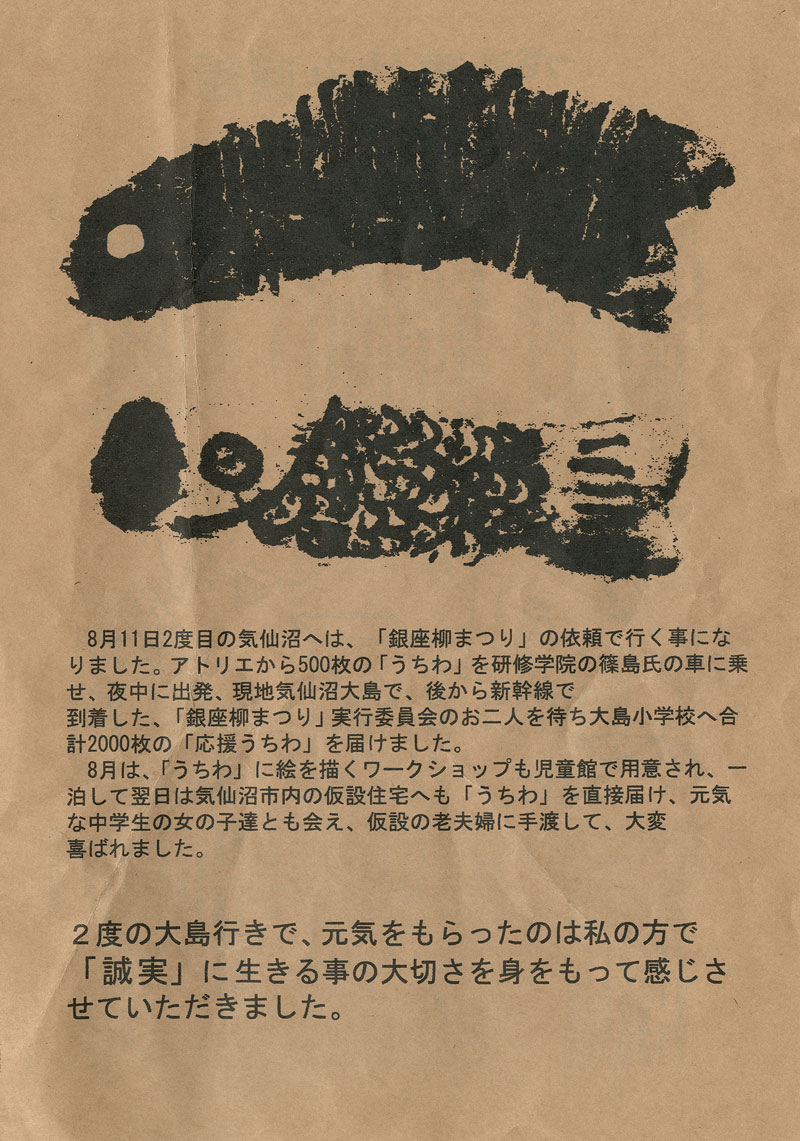 8月11日2度目の気仙沼へは、「銀座柳まつり」の依頼で行く事にな
りました。アトリエから500枚の「うちわ」を研修学院の篠島氏の車に乗
せ、夜中に出発、現地気仙沼大島で、後から新幹線で
到着した、「銀座柳まつり」実行委員会のお二人を待ち大島小学校へ合
計2000枚の「応援うちわ」を届けました。
8月は、「うちわ」に絵を描くワークショップも児童館で用意され、一
泊して翌日は気仙沼市内の仮設住宅へも「うちわ」を直接届け、元気
な中学生の女の子達とも会え、仮設の老夫婦に手渡して、大変
喜ばれました。
２度の大島行きで、元気をもらったのは私の方で
「誠実」に生きる事の大切さを身をもって感じさ
せていただきました。